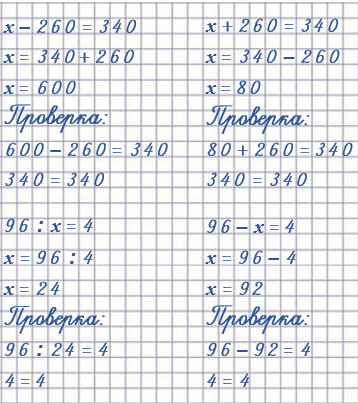 x − 260 = 340
x = 340 + 260
x = 600
Проверка:
600 − 260 = 340
340 = 340
96 : x = 4
x = 96 : 4
x = 24
Проверка:
96 : 24 = 4
4 = 4
x + 260 = 340
x = 340 − 260
x = 80
Проверка:
80 + 260 = 340
340 = 340
96 − x = 4
x = 96 − 4
x = 92
Проверка:
96 − 92 = 4
4 = 4